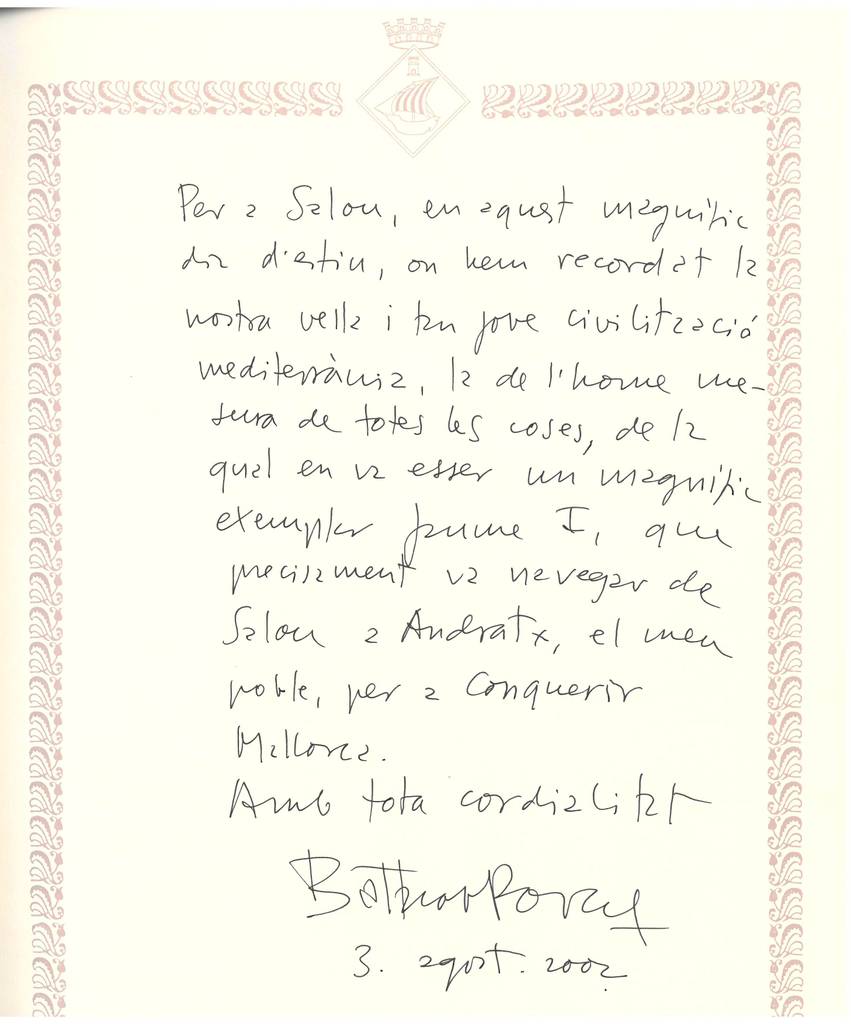 Per a Salou, en aquest magnífic
dia d'estiu, on hem recordat la
nostra vella i tan jove civilització
mediterrània, la de l'home me-
sura de totes les coses, de la
qual en va esser un magnífic
exemplar Jaume I, que
precisament va navegar de
Salou a Andratx, el meu
poble, per a conquerir
Mallorca.
Amb tota cordialitat
Baltasar Porcel
3. agost. 2002